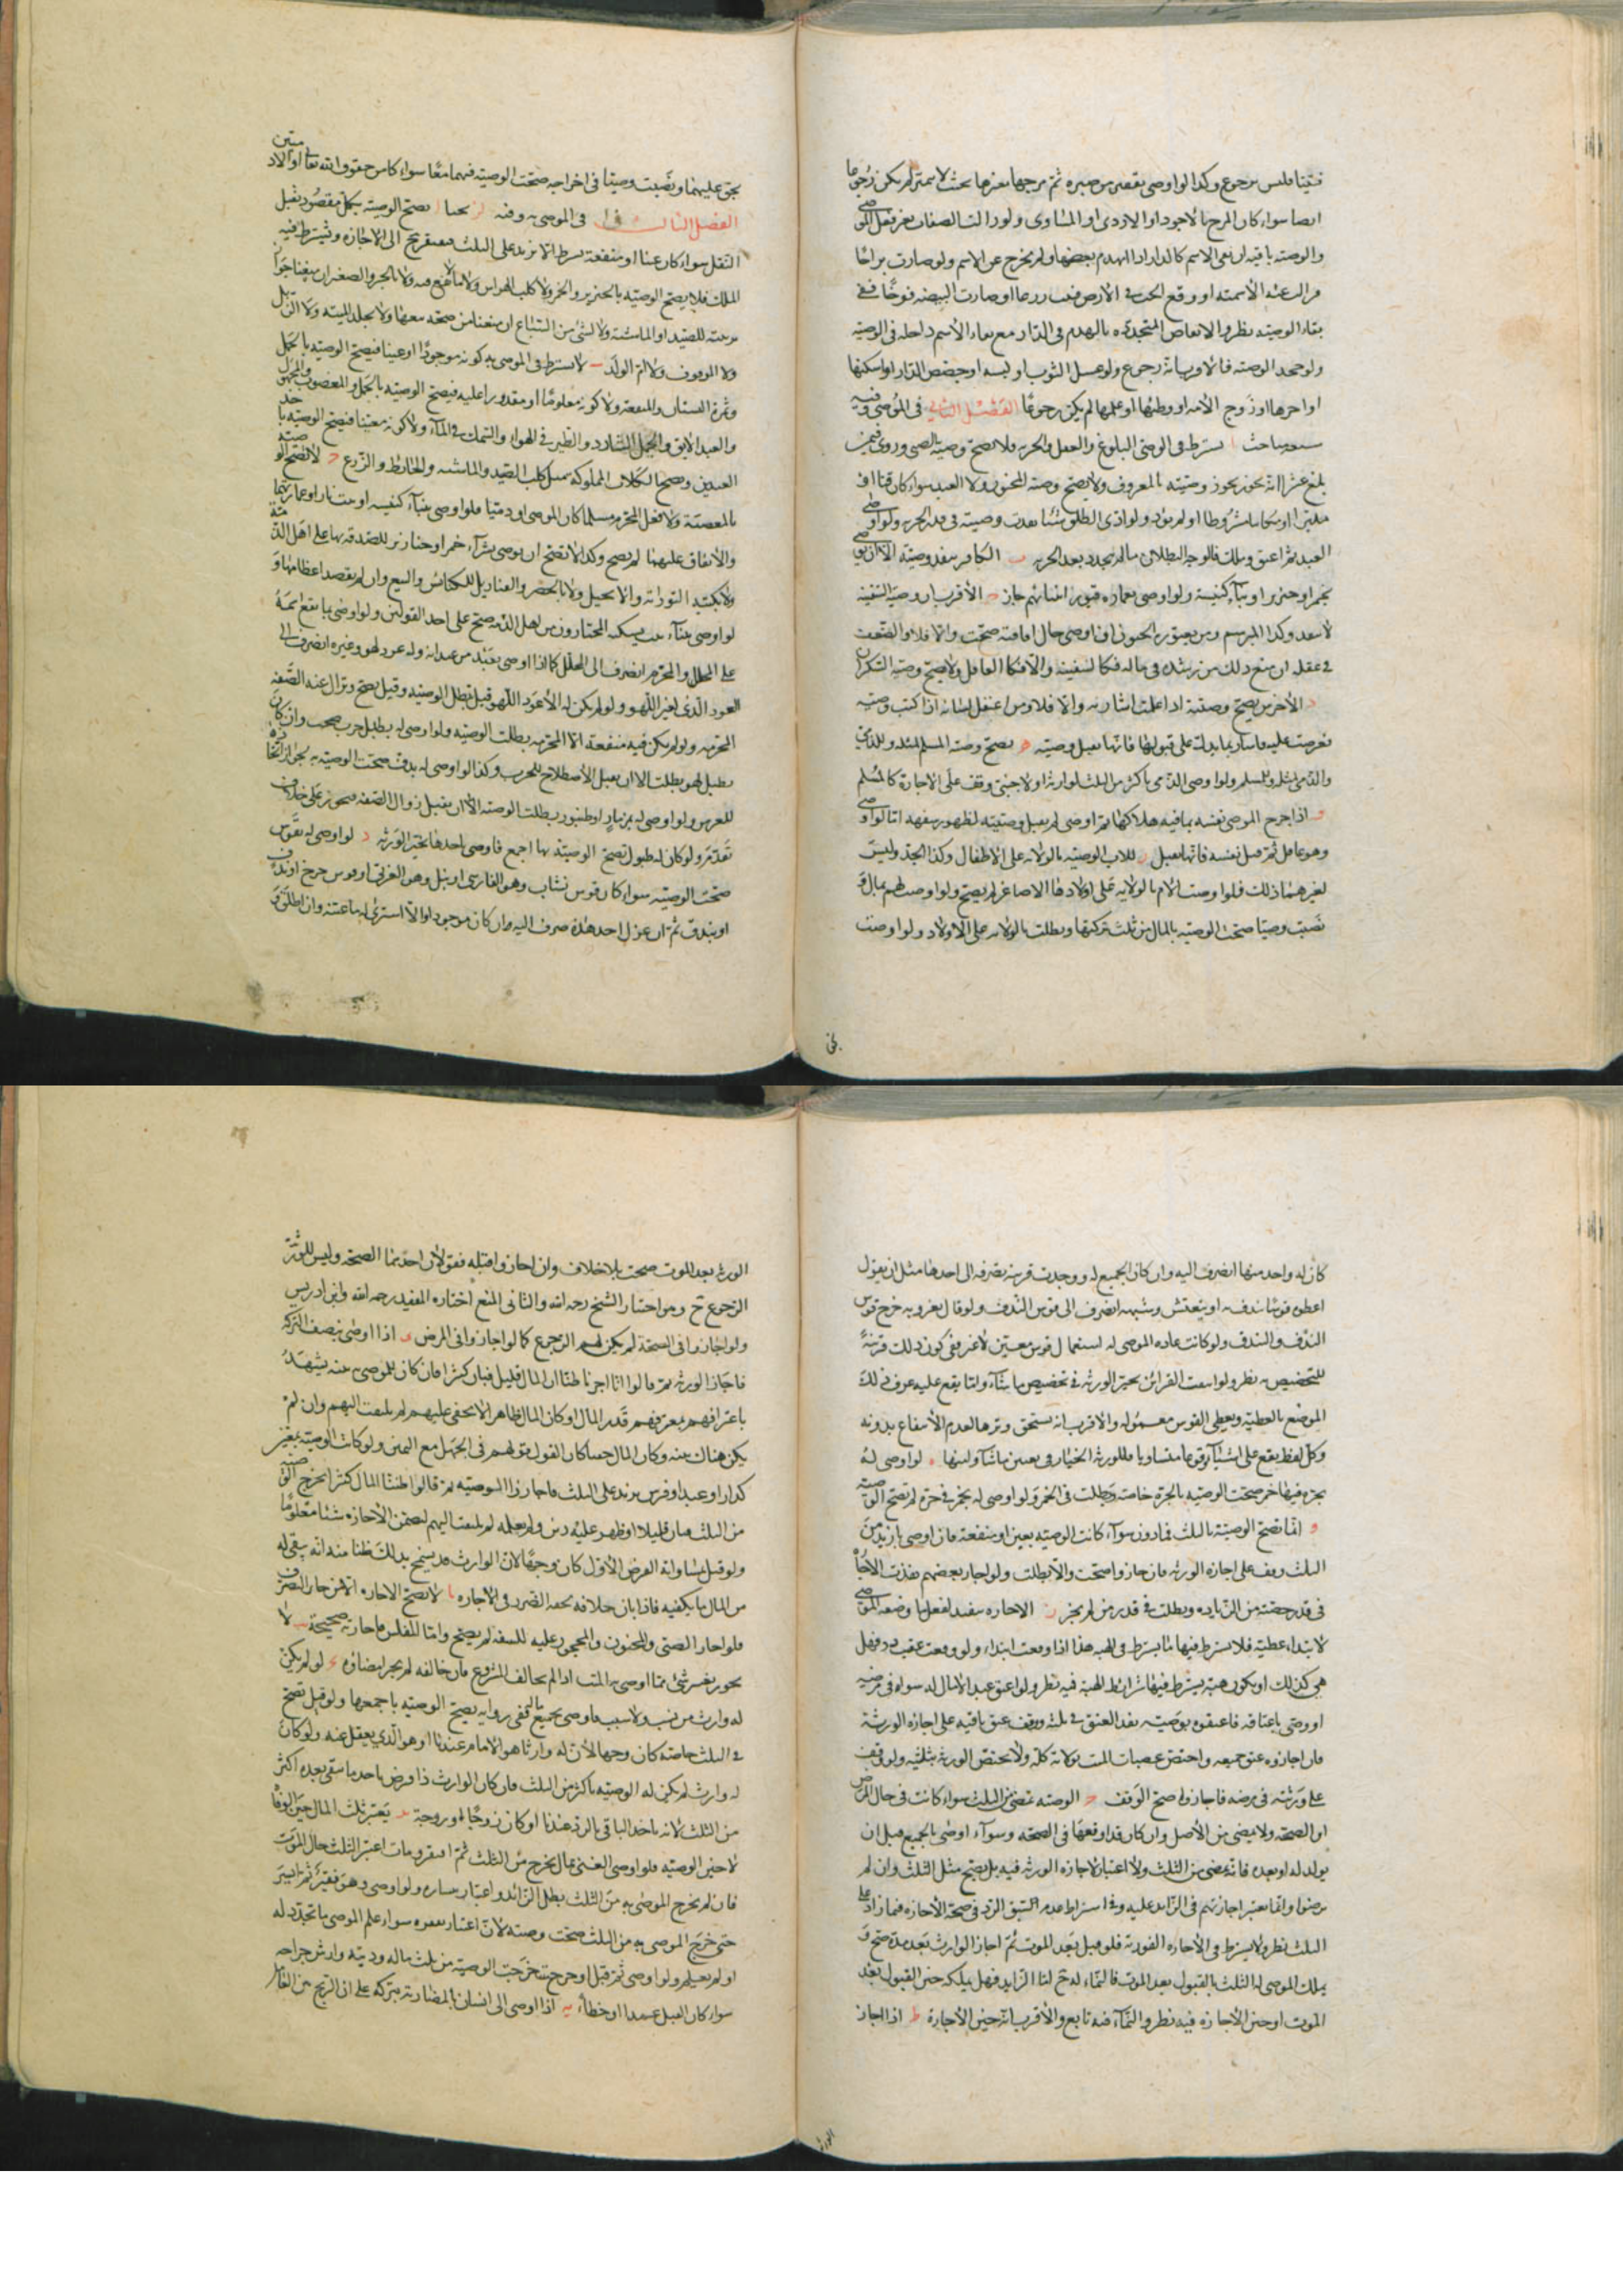 فليس برجوع وكذا لو اوصى بقفيز من صبره ثم مزجها بغيرها بحيث لا يتميز لم يكن رجوعا
ايضا سواء كان المزج بالاجود او الاردى او المساوى ولو زالت الصفات بغير فعل الموصى
والوصيه باقيه ان بقى الاسم كالدار اذا انهدم بعضها ولم يخرج عن الاسم ولو صارت براحا
بقاء الوصيه نظر والانقاض المتجدده بالهدم فى الدار مع بقاء الاسم داخله فى الوصيه
ولو جحد الوصيه فالاقرب انه رجوع ولو غسل الثوب او لبسه او جصص الدار او اسكنها
او اجرها او زوج الامه او وطئها او علمها لم يكن رجوعا الفصل الثانى فى الموصى وفيه
مباحث ا يشترط فى الموصى البلوغ والعقل والحريه فلا تصح وصيه الصبى وروى فيمن
بلغ عشرا انه يجوز وصيته بالمعروف ولا يصح وصيه المجنون ولا العبد سواء كان قنا او
مدبرا او مكاتبا مشروطا او لم يؤد ولو ادى المطلق شيئا نفذت وصيته فى قدر الحريه ولو اوصى
العبد ثم اعتق وملك فالوجه البطلان ما لم يجدد بعد الحريه ب الكافر ينفذ وصيته الا ان يوصى
بخمر او خنزير او بناء كنيسة ولو اوصى بعماره قبور انبيائهم جاز ج الاقرب ان وصيه السفيه
لا تنفذ وكذا المبرسم ومن يعتوره الجنون ان اوصى حال افاقته صحت والا فلا والضعف
فى عقله ان منع ذلك من رشده فى ماله فكالسفيه والا فكالعاقل ولا يصح وصيه السكران
د الاخرس يصح وصيته اذا علمت اشارته والا فلا ومن اعتقل لسانه اذا كتب وصيه
فعرضت عليه فاشار بما يدل على قبولها فانها يقبل وصيته ه يصح وصيه المسلم لمثله وللذمى
والذمى لمثله وللمسلم ولو اوصى الذمى باكثر من الثلث لوارثه او لاجنبى وقف على الاجازة كالمسلم
و اذا جرح الموصى نفسه بما فيه هلاكها ثم اوصى لم يقبل وصيته لظهور سفهه اما لو اوصى
وهو عاقل ثم قتل نفسه فانها تقبل ز للاب الوصيه بالولايه على الاطفال وكذا الجد وليس
لغيرهما ذلك فلو اوصت الام بالولايه على اولادها الاصاغر لم يصح ولو اوصت لهم بمال و
نصبت وصيا صحت الوصيه بالمال من ثلث تركتها وبطلت بالولايه على الاولاد ولو اوصت
بحق عليها ونصبت وصيا فى اخراجه صحت الوصيه فيهما معا سواء كان من حقوق الله تعالى او الادميين
الفصل الثالث فى الموصى به وفيه مباحث ا يصح الوصيه بكل مقصود يقبل
النقل سواء كان عينا او منفعة بشرط الا يزيد على الثلث فيفتقر الى الاجازه ويشترط فيه
الملك فلا يصح الوصيه بالخنزير والخمر ولا كلب الهراش ولا ما لا نفع فيه
ولا الموقوف ولا ام الولد ب لا يشترط فى الموصى به كونه موجودا او عينا فيصح الوصيه بالحمل
وثمرة البستان والمنفعه ولا كونه معلوما او مقدورا عليه فيصح الوصيه بالحمل والمغصوب والمجهول
والعبد الابق والجمل الشارد والطير فى الهواء والسمك فى الماء ولا كونه معينا فيصح الوصيه باحد
العبدين ويصح بالكلاب المملوكه مثل كلب الصيد والماشيه والحائط والزرع ج لا تصح الوصيه
بالمعصيه ولا بفعل المحرم مسلما كان الموصى او ذميا فلو اوصى ببناء كنيسه او بيت نار او عمارتهما
والانفاق عليهما لم يصح وكذا لا تصح ان يوصى بشراء خمر او خنازير للصدقه بها على اهل الذمه
ولا بكتبه التوراه والانجيل ولا بالحصر والقناديل للكنائس والبيع وان لم يقصد اعظامها و
على المحلل والمحرم انصرف الى المحلل كما اذا اوصى بعود من عيدانه وله عود لهو وغيره انصرف الى
العود الذى لغير اللهو ولو لم يكن له الا عود اللهو قيل تبطل الوصيه وقيل يصح وتزال عنه الصفه
المحرمه ولو لم يكن فيه منفعة الا المحرمه بطلت الوصيه ولو اوصى له بطبل حرب صحت وان كان
بطبل لهو بطلت الا ان يقبل الاصطلاح للحرب وكذا لو اوصى له بدف صحت الوصيه به
للعرس ولو اوصى له بمزمار او طنبور بطلت الوصيه الا ان يقبل زوال الصفه فيجوز على خلاف
تقدم ولو كان له طبول تصح الوصيه بها اجمع فاوصى باحدها تخير الورثه د لو اوصى له بقوس
صحت الوصيه سواء كان قوس نشاب وهو الفارسى او نبل وهو العربى او قوس جرخ او ندف
او بندق ثم ان عزل احد هذه صرف اليه وان كان موجودا والا اشترى له ما عينه وان اطلق و
بحق
كان له واحد منها انصرف اليه وان كان الجميع له ووجدت قرينه تصرفه الى احدها مثل ان يقول
اعطوه قوسا يندف به او يتعيش وشبهه انصرف الى قوس الندف ولو قال يغزو به خرج قوس
الندف والبندق ولو كانت عاده الموصى له استعمال قوس معين لا غير ففى كون ذلك قرينة
للتخصيص به نظر ولو انتفت القرائن تخير الورثه فى تخصيص ما شاء وا مما يقع عليه عرف ذلك
الموضع بالعطيه ويعطى القوس معموله والاقرب انه يستحق وترها لعدم الانتفاع بدونه
وكل لفظ يقع على اشياء وقوعا متساويا فللورثه الخيار فى تعيين ما شاء وا منها ه لو اوصى له
بجره فيها خمر صحت الوصيه بالجرة خاصة وبطلت فى الخمر ولو اوصى له بخمر فى جره لم تصح الوصيه
و انما تصح الوصية بالثلث فما دون سواء كانت الوصيه بعين او منفعة فان اوصى بازيد من
الثلث وقف على اجازه الورثه فان اجازوا صحت والا بطلت ولو اجاز بعضهم نفذت الاجازه
فى قدر حصته من الزياده وبطلت فى قدر من لم يجز ز الاجازه تنفيذ لفعل ما وضعه الموصى
لا ابتداء عطية فلا يشترط فيها ما يشترط فى الهبه هذا اذا وقعت ابتداء ولو وقعت عقيب رد فهل
هى كذلك او يكون هبة يشترط فيها شرائط الهبة فيه نظر ولو اعتق عبدا لا مال له سواه فى مرضه
او وصى باعتاقه فاعتقوه بوصيته نفذ العتق فى ثلثه ووقف عتق باقيه على اجازه الورثة
فان اجازوه عتق جميعه واختص عصبات الميت بولائه كله ولا يختص الورثه بثلثيه ولو وقف
على ورثته فى مرضه فاجازوا صح الوقف ح الوصيه تمضى من الثلث سواء كانت فى حال المرض
او الصحة ولا يمضى من الاصل وان كان قد اوقعها فى الصحه وسواء اوصى بالجميع قبل ان
يولد له او بعده فانه يمضى من الثلث ولا اعتبار لاجازه الورثه فيه بل يصح مثل الثلث وان لم
يرضوا وانما يعتبر اجازتهم فى الزائد عليه وفى اشتراط عدم سبق الرد فى صحة الاجازه فيما زاد على
الثلث نظر ولا يشترط فى الاجازه الفوريه فلو قبل بعد الموت ثم اجاز الوارث بعد مدة صح و
يملك الموصى له الثلث بالقبول بعد الموت فالنماء له ح اما الزايد فهل يملكه حين القبول بعد
الموت او حين الاجازه فيه نظر والنماء فيه تابع والاقرب انه حين الاجازة ط اذا اجاز
الورثه بعد الموت صحت بلا خلاف وان اجازوا قبله فقولان احدهما الصحه وليس للورثه
الرجوع ح وهو اختيار الشيخ رحمه الله والثانى المنع اختاره المفيد رحمه الله وابن ادريس
ولو اجازوا فى الصحة لم يكن لهم الرجوع كما لو اجازوا فى المرض ى اذا اوصى بنصف التركه
فاجاز الورثه ثم قالوا انا اجزنا ظنا ان المال قليل فبان كثيرا فان كان للموصى له بينه يشهد
باعترافهم بمعرفتهم قدر المال او كان المال ظاهرا لا يخفى عليهم لم يلتفت اليهم وان لم
يكن هناك بينه وكان المال خفيا كان القول قولهم فى الجهل مع اليمين ولو كانت الوصيه بمعين
كدار او عبد او فرس يزيد على الثلث فاجازوا الوصيه ثم قالوا ظننا المال كثيرا يخرج الوصيه
من الثلث فبان قليلا او ظهر عليه دين ولم نعلمه لم يلتفت اليهم لتضمن الاجازه شيئا معلوما
ولو قيل بمساواة الفرض الاول كان وجها لان الوارث قد يسمح بذلك ظنا منه انه يبقى له
من المال ما يكفيه فاذا بان خلافه لحقه الضرر فى الاجازه يا لا تصح الاجازه الا من جائز التصرف
فلو اجاز الصبى والمجنون والمحجور عليه للسفه لم يصح واما المفلس فاجازته صحيحة يب لا
يجوز تغيير شئ مما اوصى به الميت اذا لم يخالف المشروع فان خالفه لم يجز امضاؤه يج لو لم يكن
له وارث من نسب ولا سبب فاوصى بجميع ماله ففى روايه يصح الوصيه باجمعها ولو قيل تصح
فى الثلث خاصه كان وجها لان له وارثا هو الامام عندنا او هو الذى يعقل عنه ولو كان
له وارث لم يكن له الوصيه باكثر من الثلث فان كان الوارث ذا فرض ياخذ ما بقى بعده اكثر
من الثلث لانه ياخذ الباقى بالرد عندنا او كان زوجا او زوجة يد يعتبر ثلث المال حين الوفاة
لا حين الوصيه فلو اوصى الغنى بمال يخرج من الثلث ثم افتقر ومات اعتبر الثلث حال الموت
فان لم يخرج الموصى به من الثلث بطل الزائد ولا اعتبار بيساره ولو اوصى وهو فقير ثم ايسر
حتى خرج الموصى به من الثلث صحت وصيته لان اعتبار بفقره سواء علم الموصى بما تجدد له
او لم يعلم ولو اوصى ثم قتل او جرح خرجت الوصية من ثلث ماله وديته وارش جراحه
سواء كان القتل عمدا او خطأ يه اذا اوصى الى انسان بالمضاربه بتركته على ان الربح بين العامل
الورثه